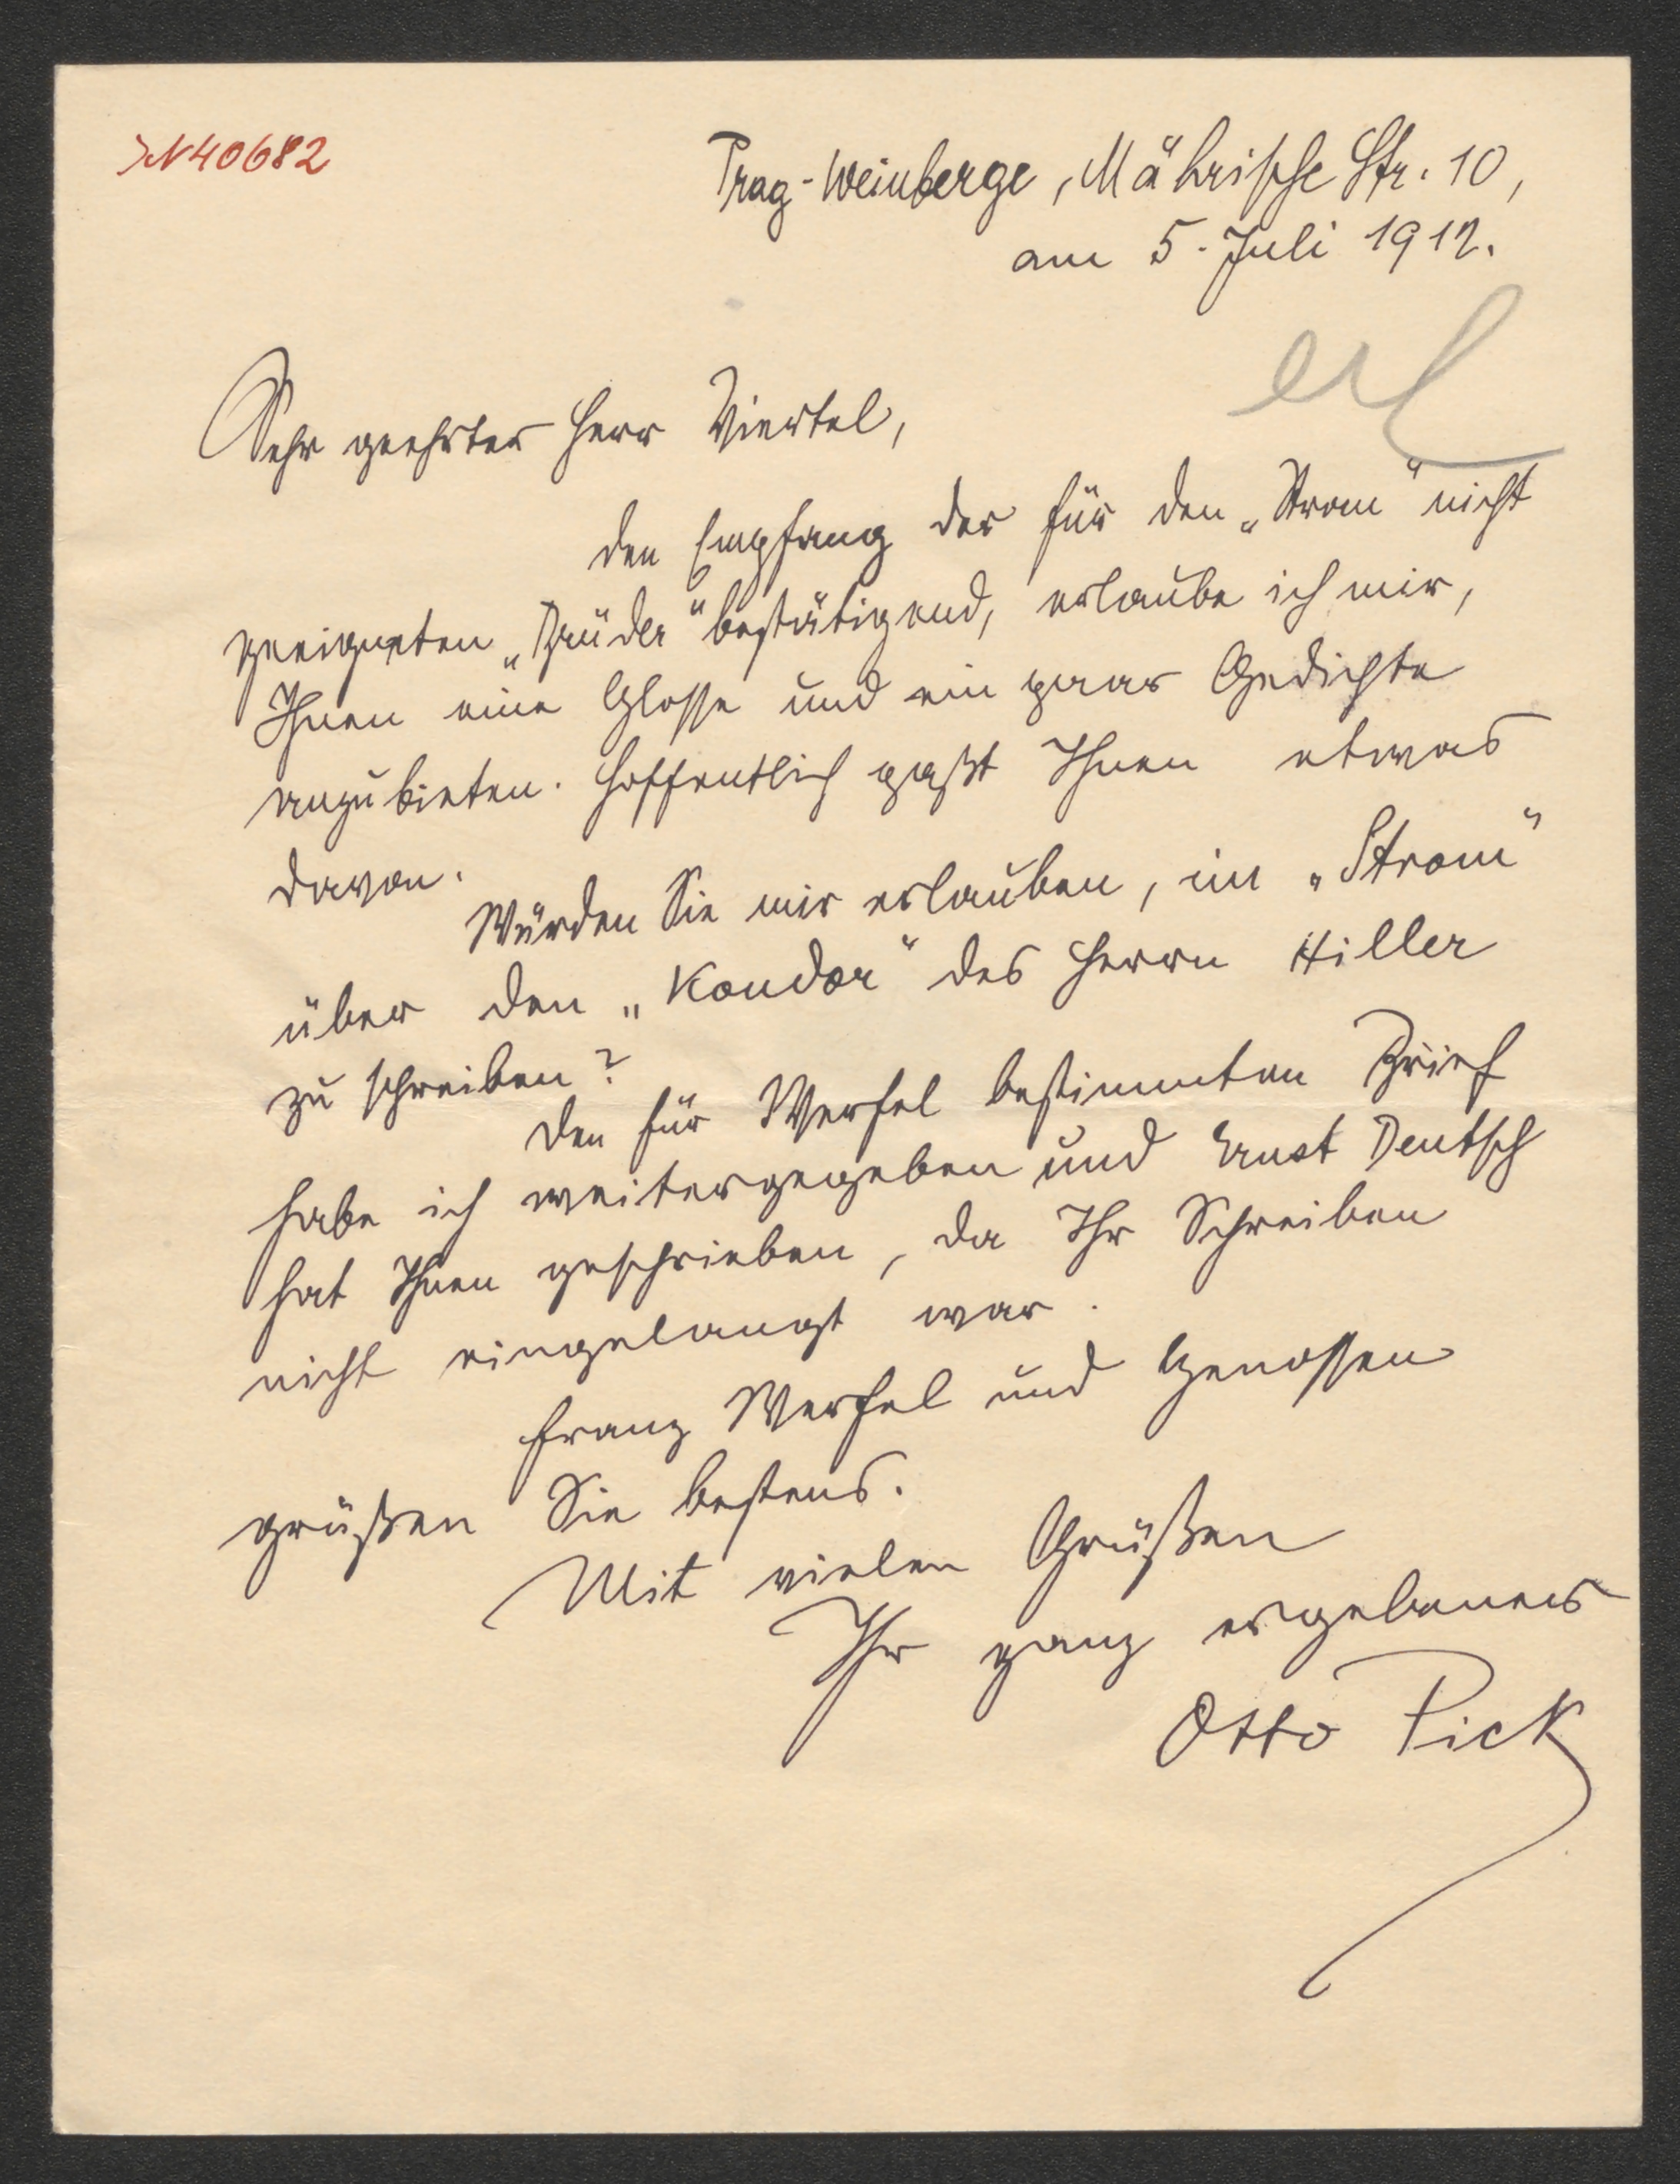 JN 40682
Prag-Weinberge, Mährische Str. 10,
am 5. Juli 1912.
erl
Sehr geehrter Herr Viertel,
den Empfang der für den „Strom“ nicht
geeigneten „Brüder“ bestätigend, erlaube ich mir,
Ihnen eine Glosse und ein paar Gedichte
anzubieten. Hoffentlich paßt Ihnen etwas
davon.
Würden Sie mir erlauben, im „Strom“
über den „Kondor“ des Herrn Hiller
zu schreiben?
Den für Werfel bestimmten Brief
habe ich weitergegeben und Ernst Deutsch
hat Ihnen geschrieben, da Ihr Schreiben
nicht eingelangt war.
Franz Werfel und Genossen
grüßen Sie bestens.
Mit vielen Grüßen
Ihr ganz ergebener
Otto Pick